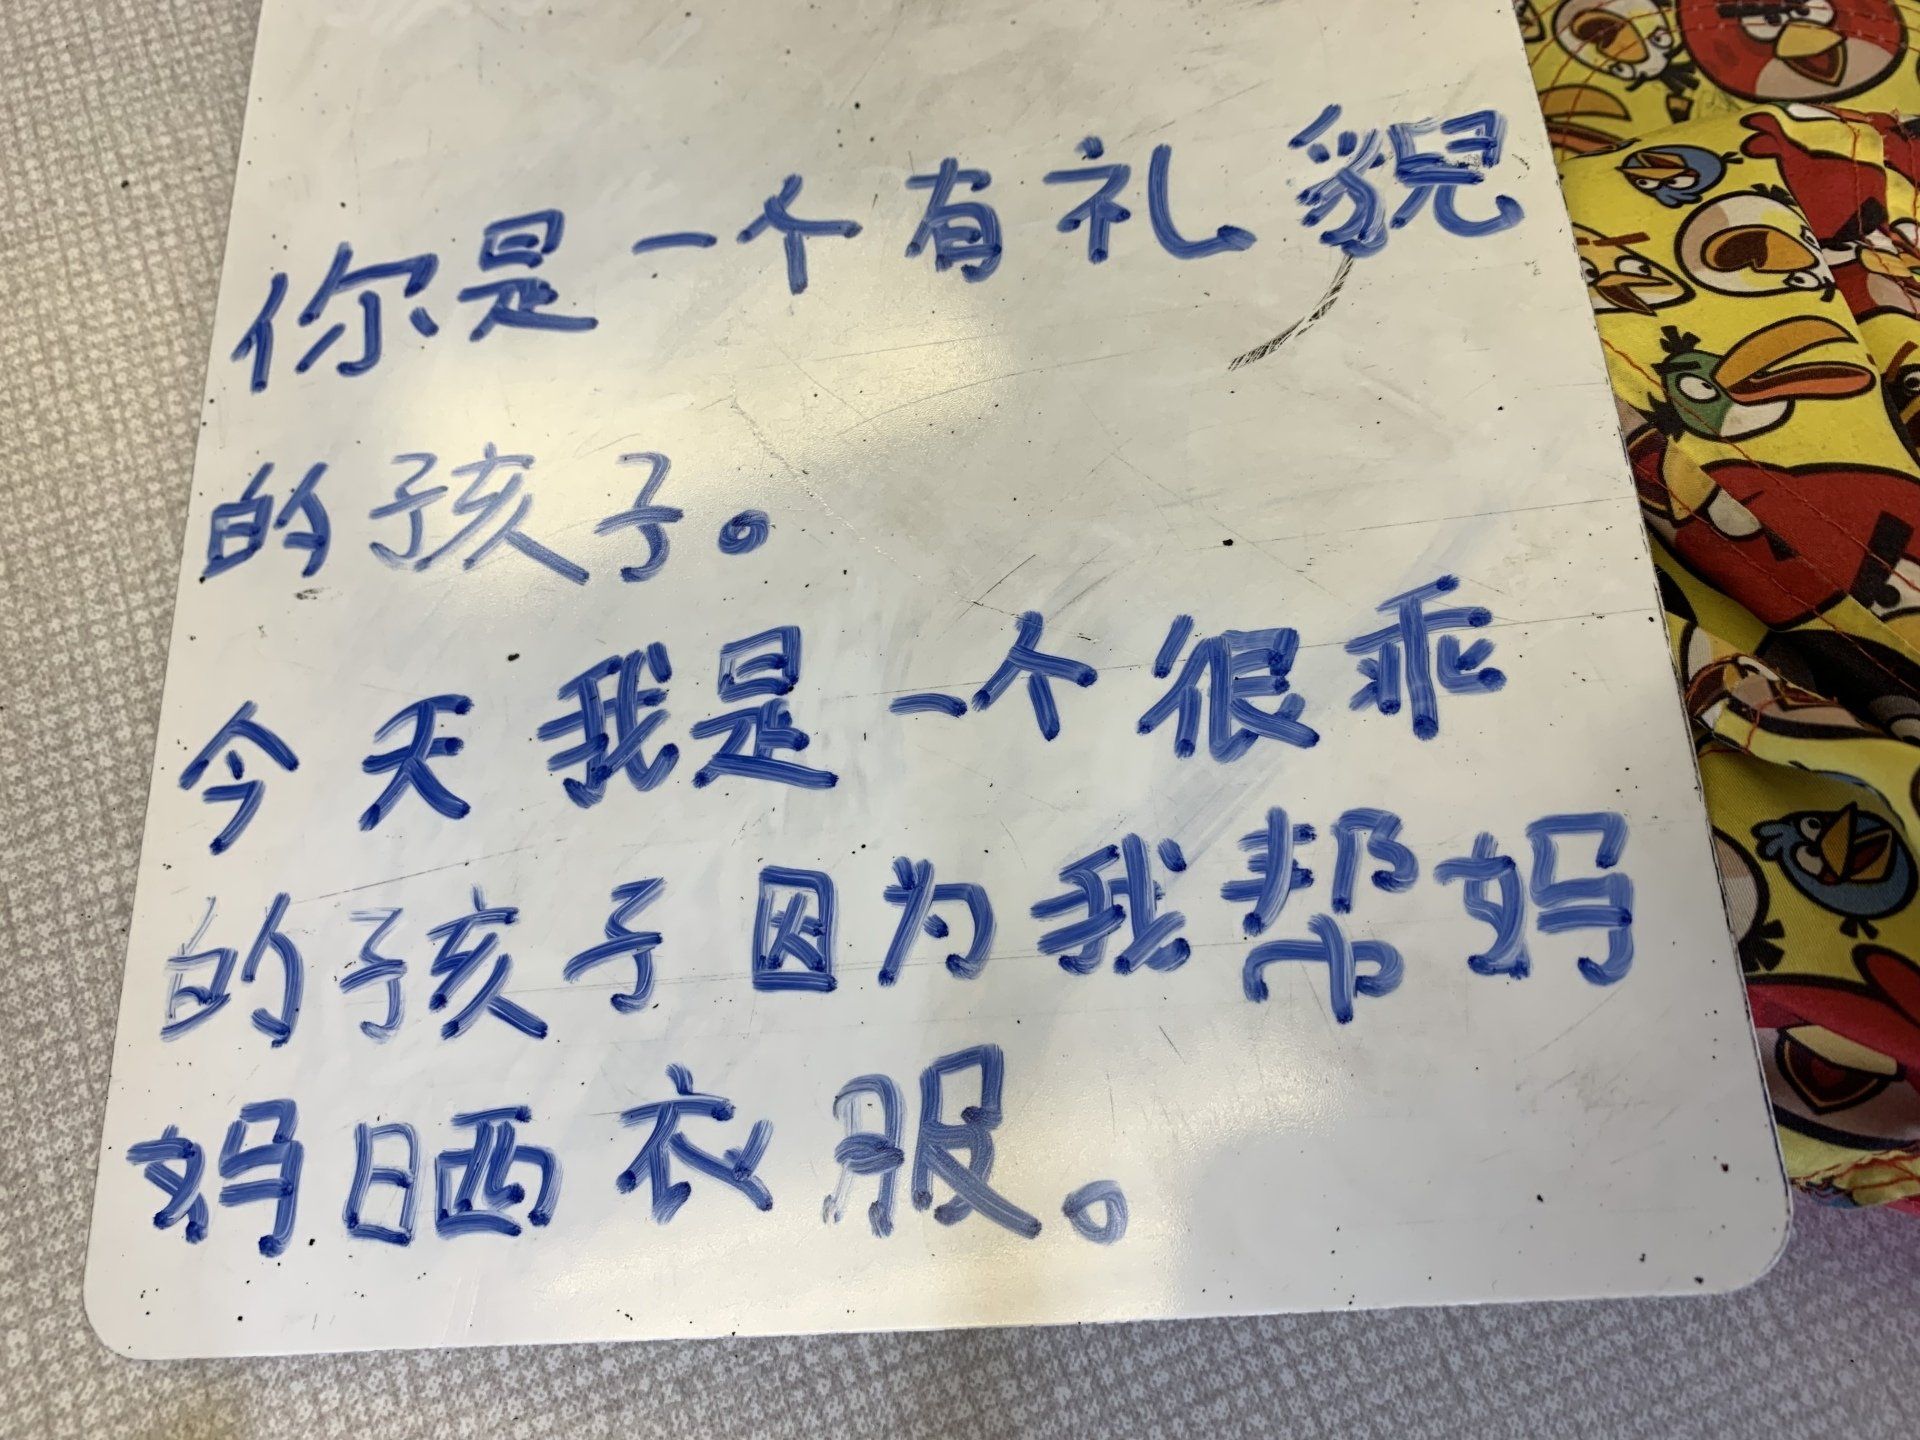 你是一个有礼貌
的孩子。
今天我是一个很乖
的孩子因为我帮妈
妈晒衣服。